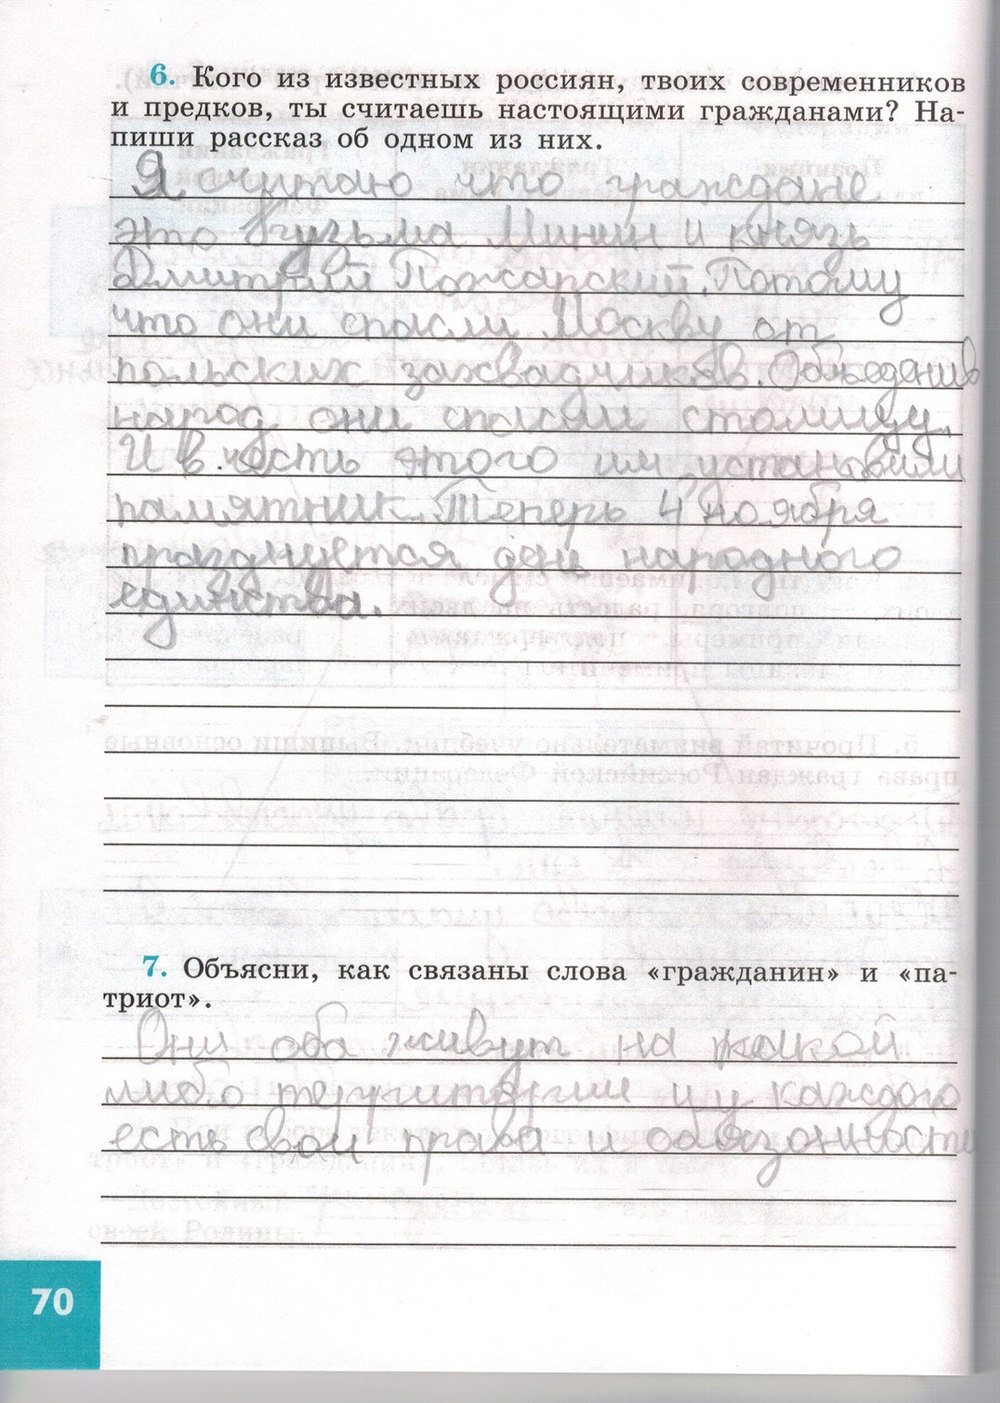 6. Кого из известных россиян, твоих современников
и предков, ты считаешь настоящими гражданами? На-
пиши рассказ об одном из них.
Я считаю что граждане
это Кузьма Минин и князь
Дмитрий Пожарский. Потому
что они спасли Москву от
польских захвадчиков. Объеденив
народ они спасли столицу.
И в честь этого им установили
памятник. Теперь 4 ноября
празднуется день народного
единства.
7. Объясни, как связаны слова «гражданин» и «па-
триот».
Они оба живут на какой
либо территории и у каждого
есть свои права и обязонности
70